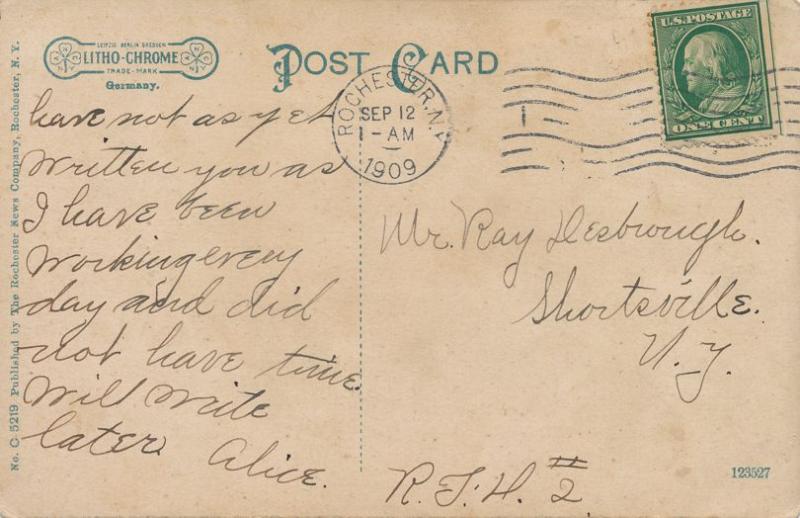 LEIPZIG BERLIN DRESDEN
LITHO-CHROME
TRADE-MARK
Germany.
POST CARD
ROCHESTER, N.Y.
SEP 12
1-AM
1909
U.S. POSTAGE
ONE CENT
No. C 5219 Published by The Rochester News Company, Rochester, N. Y.
have not as yet
written you as
I have been
working every
day and did
not have time
Will write
later. Alice.
Mr. Ray Desbrough.
Shortsville.
N. Y.
R.F.D. #2
123527